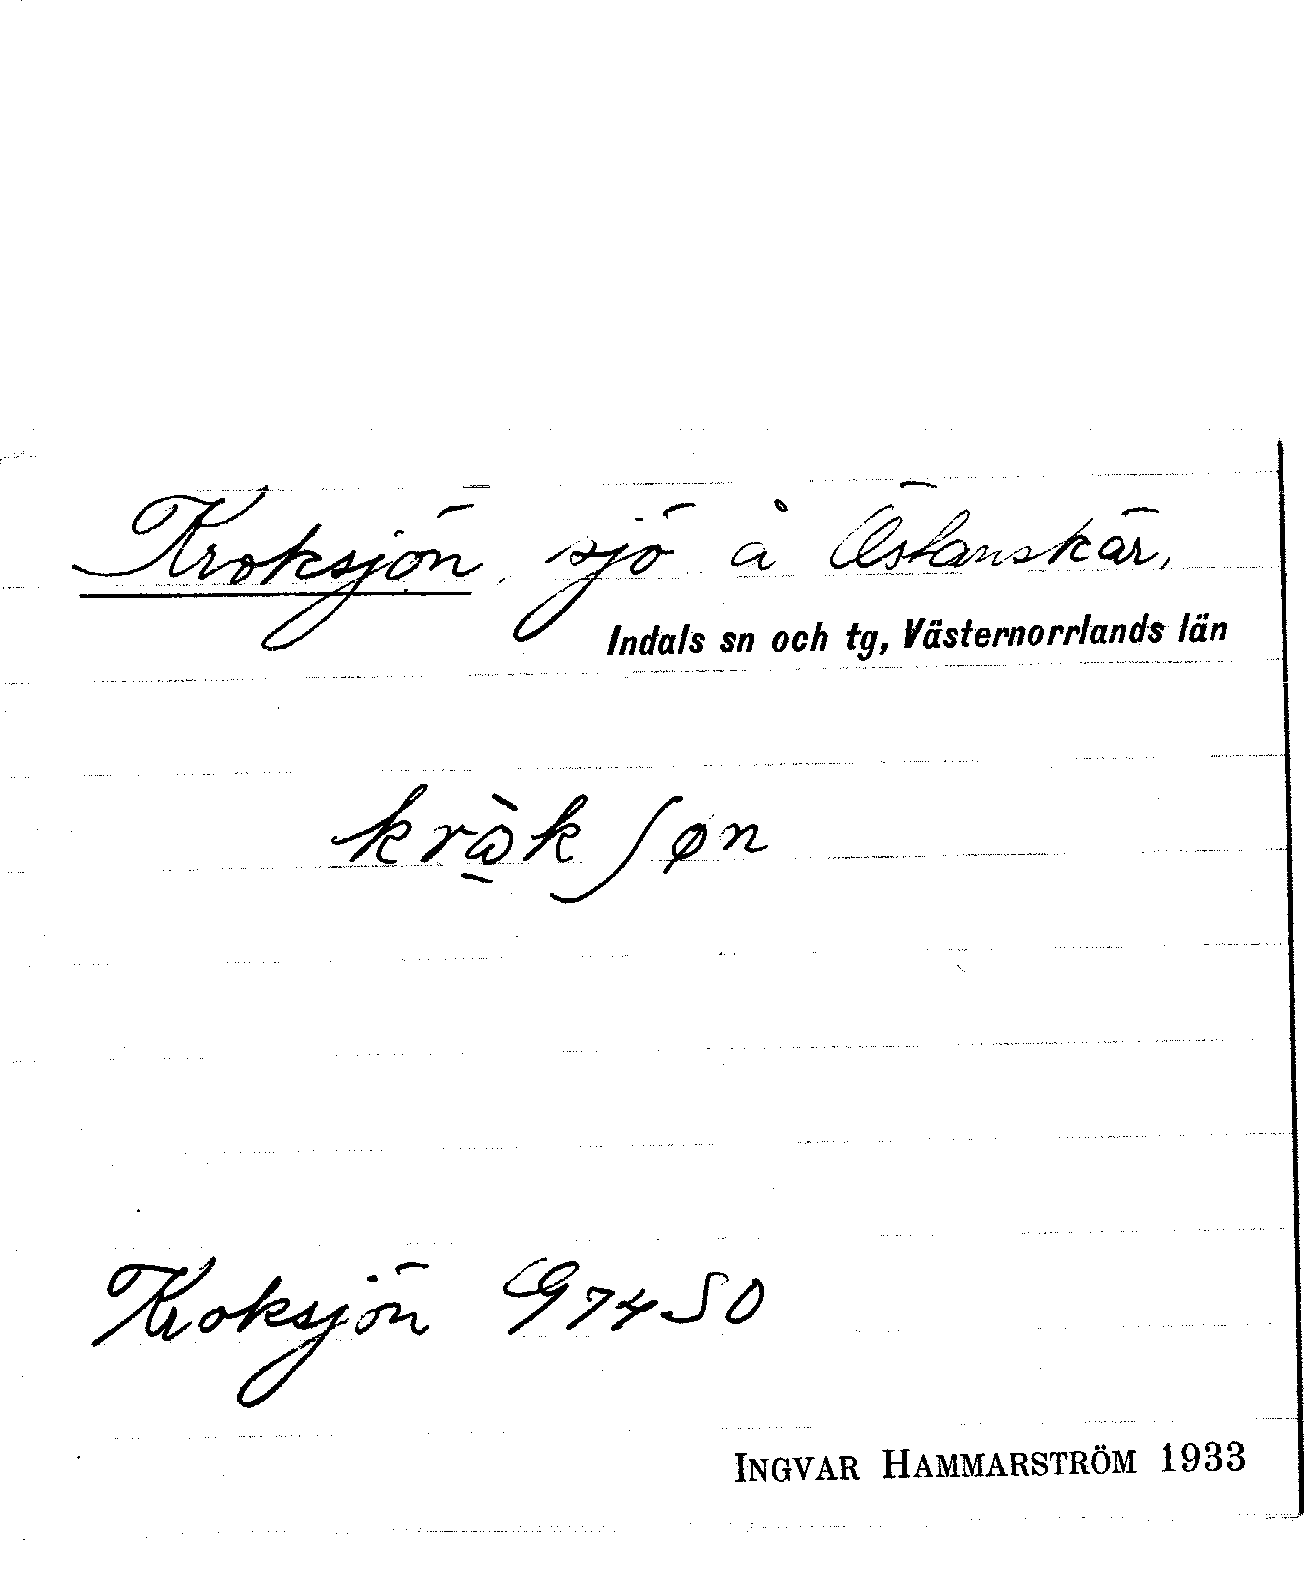 Kroksjön, sjö å Östanskär,
Indals sn och tg, Västernorrlands län
Kroksjön G 74 SO
INGVAR HAMMARSTRÖM 1933